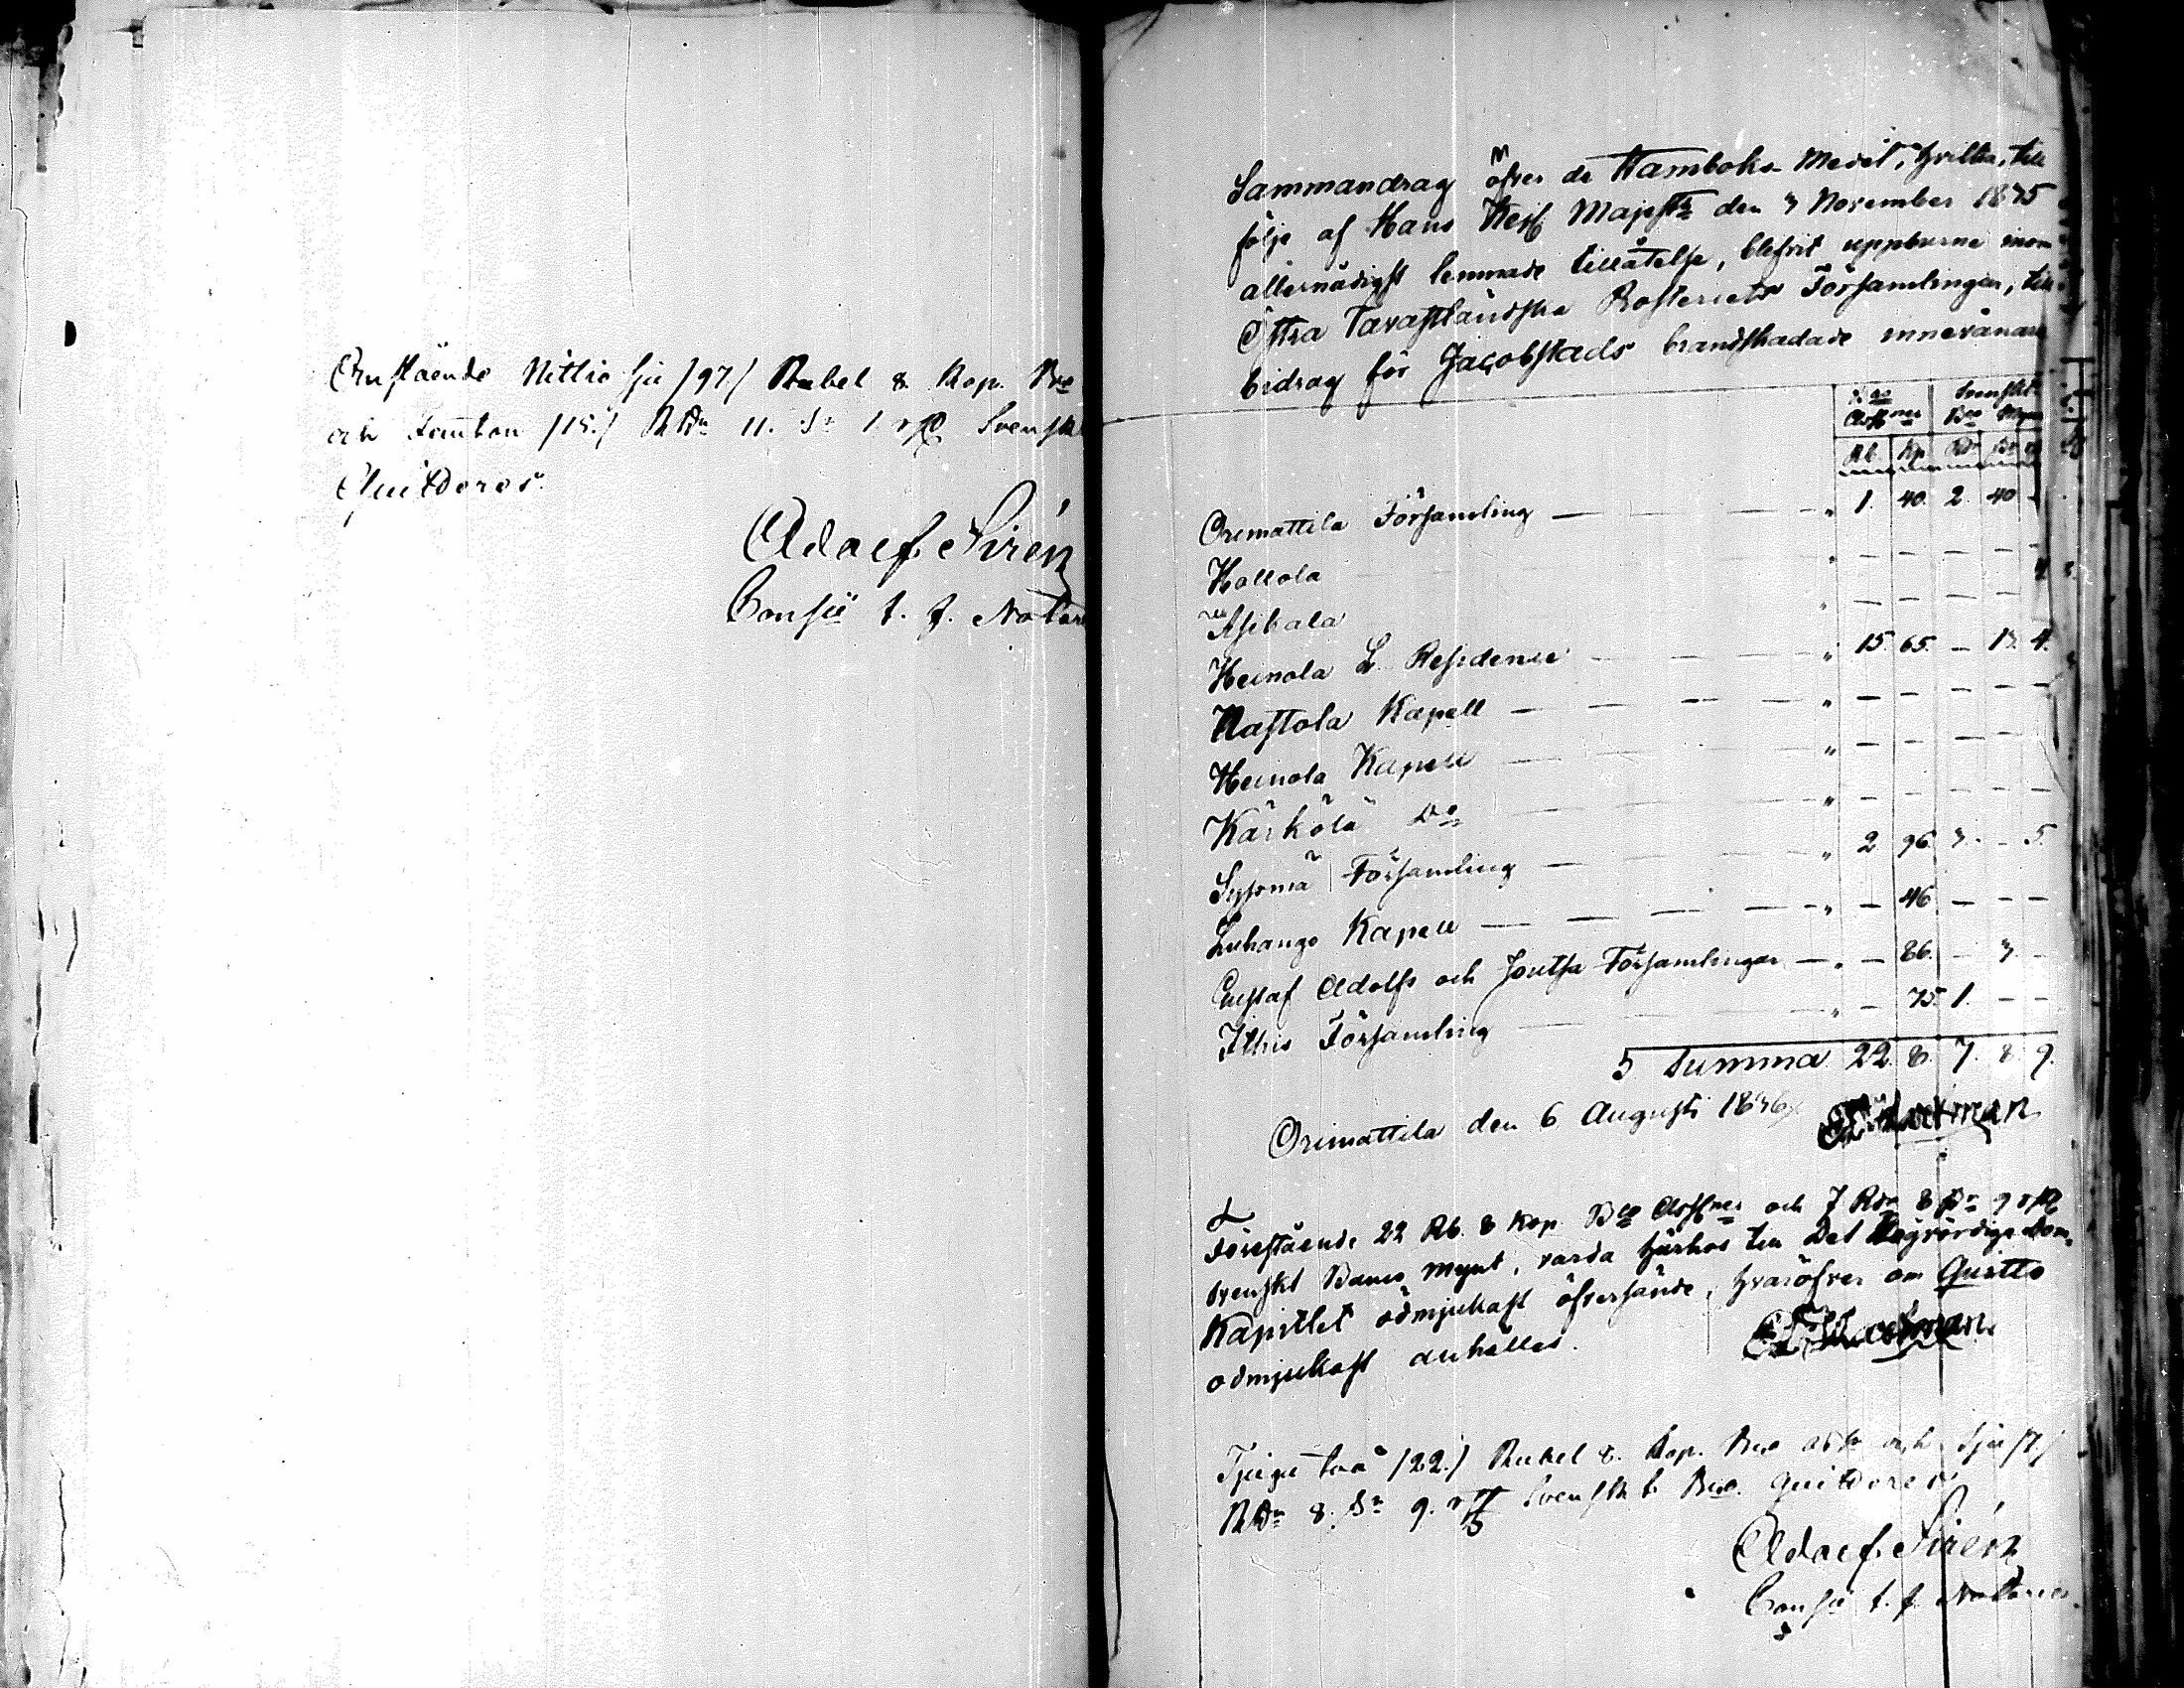 Omstående Nittio sju /97/ Rubel 8. Kop. Bco
och Femton /15./ RDr 11. Sr 1 rst Svenskt
Quitteras.
Adolf Sirén
Consist: t. f. Notarie
Sammandrag öfver de Stamboks Medel, hvilka, till
följe af Hans Kejs. Majestts den 3 November 1835
allernådigst lemnade tillåtelse, blifvit uppburne inom
Östra Tavastländska Prosteriets Församlingar, till
bidrag för Jacobstads brandskadade innevånare
Bco Assner Svenskt Bco Mynt
Rb. Kp. Rdr Sr rst
Orimattila Församling — — — " 1. 40. 2. 40 -
Hollola — — — — — — —
Asikkala " — — — — —
Heinola L. Residence — — — " 15. 65. — 13. 4.
Nastola Kapell — — — — " — — — — —
Heinola Kapell — — — " — — — — —
Kärkölä Do — — — " — — — — —
Sysmä Församling — — — " 2. 96. 3. — 5.
Luhango Kapell — — — — " — 46. — — —
Gustaf Adolfs och Joutsa Församlingar — " — 86. — 3. —
Ithis Församling — — — " — 75. 1. — —
Summa 22. 8. 7. 8. 9.
Orimattila den 6 Augusti 1836.
Förestående 22 Rb. 8 Kop. Bco Assner och 7 Rdr 8 Sr 9 rst
Svenskt Banco Mynt, varda härhos till Det Högvördige Dom-
Kapitlet ödmjukast öfversände, hvaröfver om Quitto
ödmjukast anhålles.
Tjugu två /22./ Rubel 8. Kop. Bco Ass. och Sju /7./
RDr 8. Sr 9. rst Svenskt Bco. Quitteras
Adolf Sirén
Consist: t. f. Notarie.